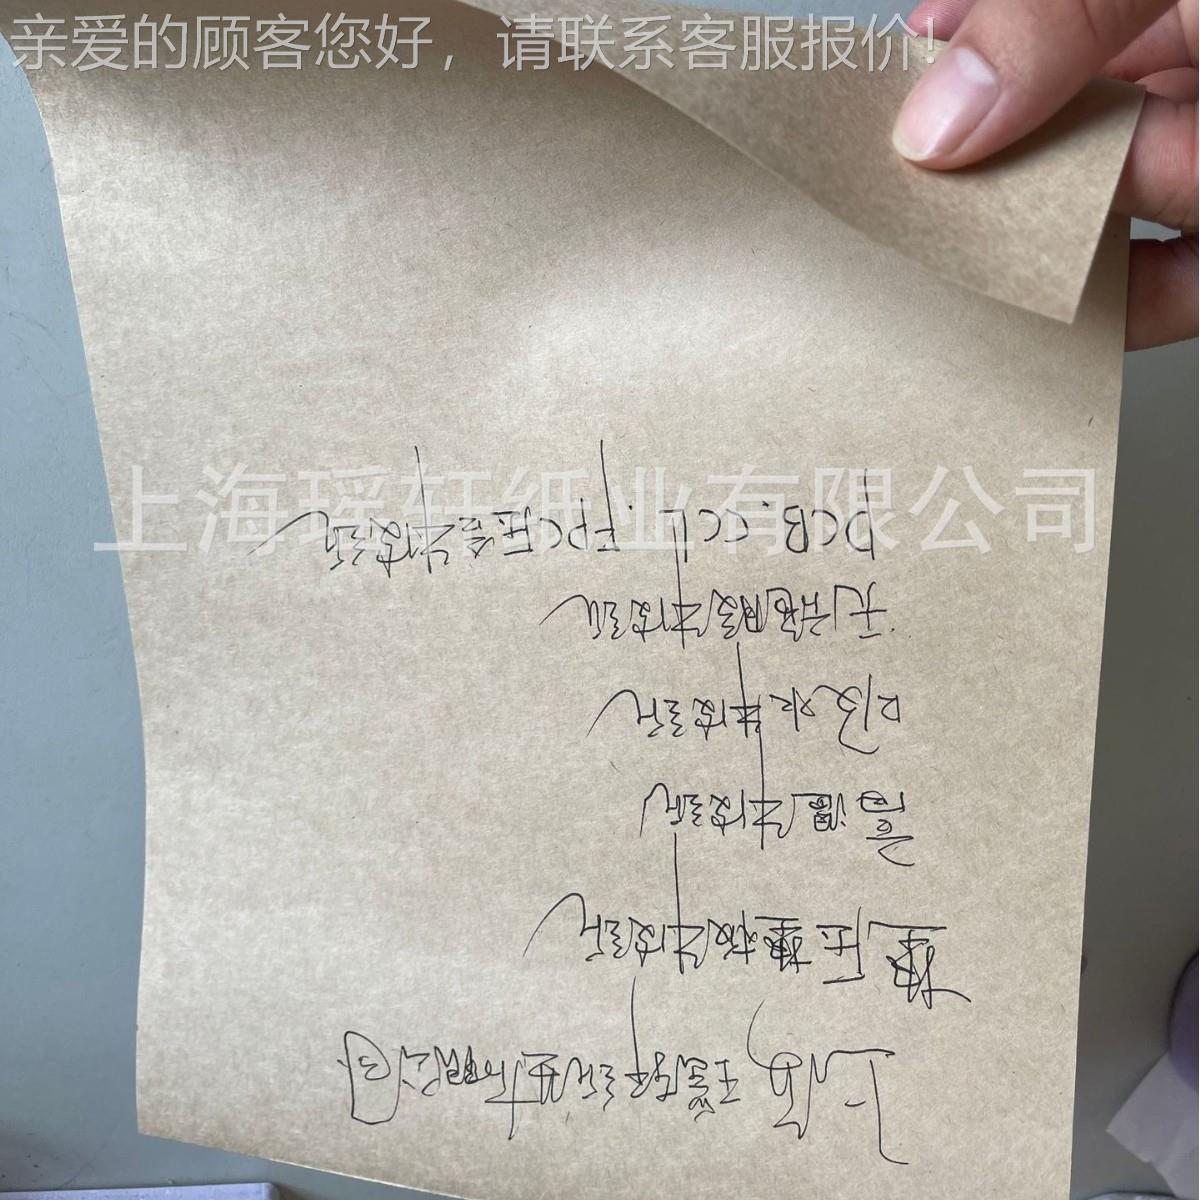 亲爱的顾客您好，请联系客服报价!
上海瑶轩纸业有限公司
上海瑶轩纸业有限公司
压 板牛皮纸
高温牛皮纸
吸水牛皮纸
无 牛皮纸
PCB.CCL.FPC压合牛皮纸